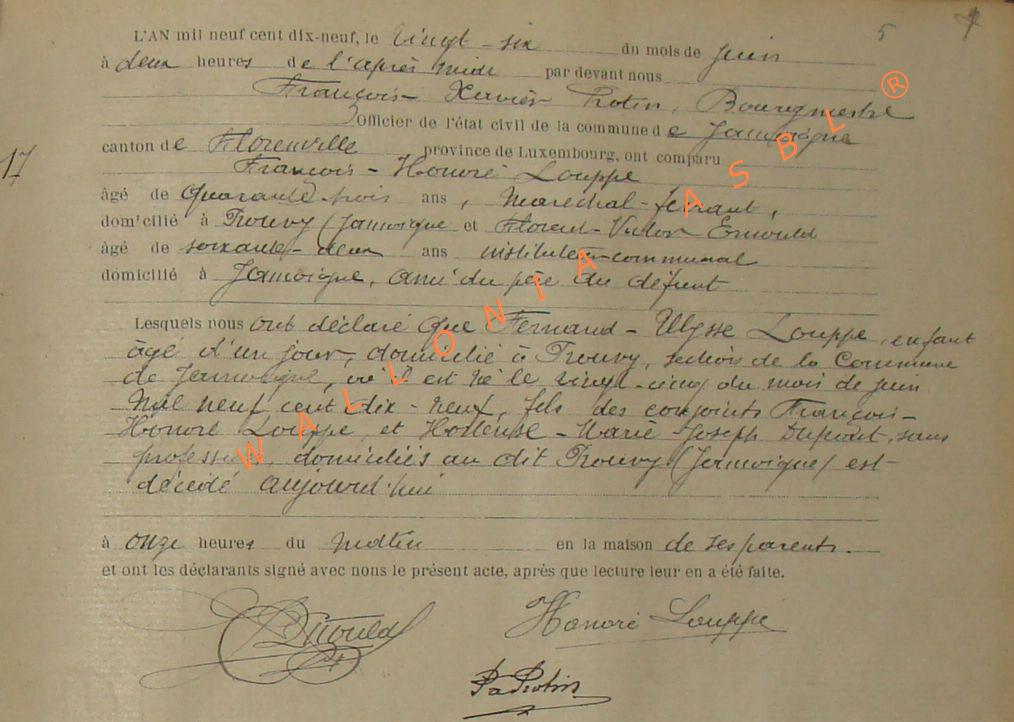 5
L'AN mil neuf cent dix-neuf, le vingt-six du mois de Juin
à deux heures de l'après midi par devant nous
François-Xavier Protin, Bourgmestre
Officier de l'état civil de la commune de Jamoigne
17
canton de Florenville province de Luxembourg, ont comparu
François-Honoré Louppe
âgé de quarante-trois ans, Maréchal-ferrant,
domicilié à Prouvy (Jamoigne et Florent-Victor Ernould
âgé de soixante-deux ans instituteur communal
domicilié à Jamoigne, ami du père du défunt
Lesquels nous ont déclaré que Fernand-Ulysse Louppe, enfant
âgé d'un jour, domicilié à Prouvy, section de la Commune
de Jamoigne, où il est né le vingt-cinq du mois de juin
Mil neuf cent dix-neuf, fils des conjoints François-
Honoré Louppe, et Hortense-Marie-Joseph Dupont, sans
profession, domiciliés au dit Prouvy (Jamoigne) est
décédé aujourd'hui
à onze heures du matin en la maison de ses parents.
et ont les déclarants signé avec nous le présent acte, après que lecture leur en a été faite.
Ernould Honoré Louppe
Protin
WALLONIA ASBL ®